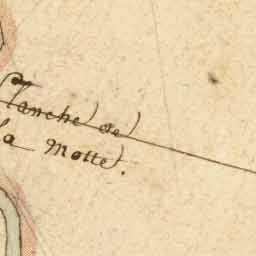 Planche de
la Motte.